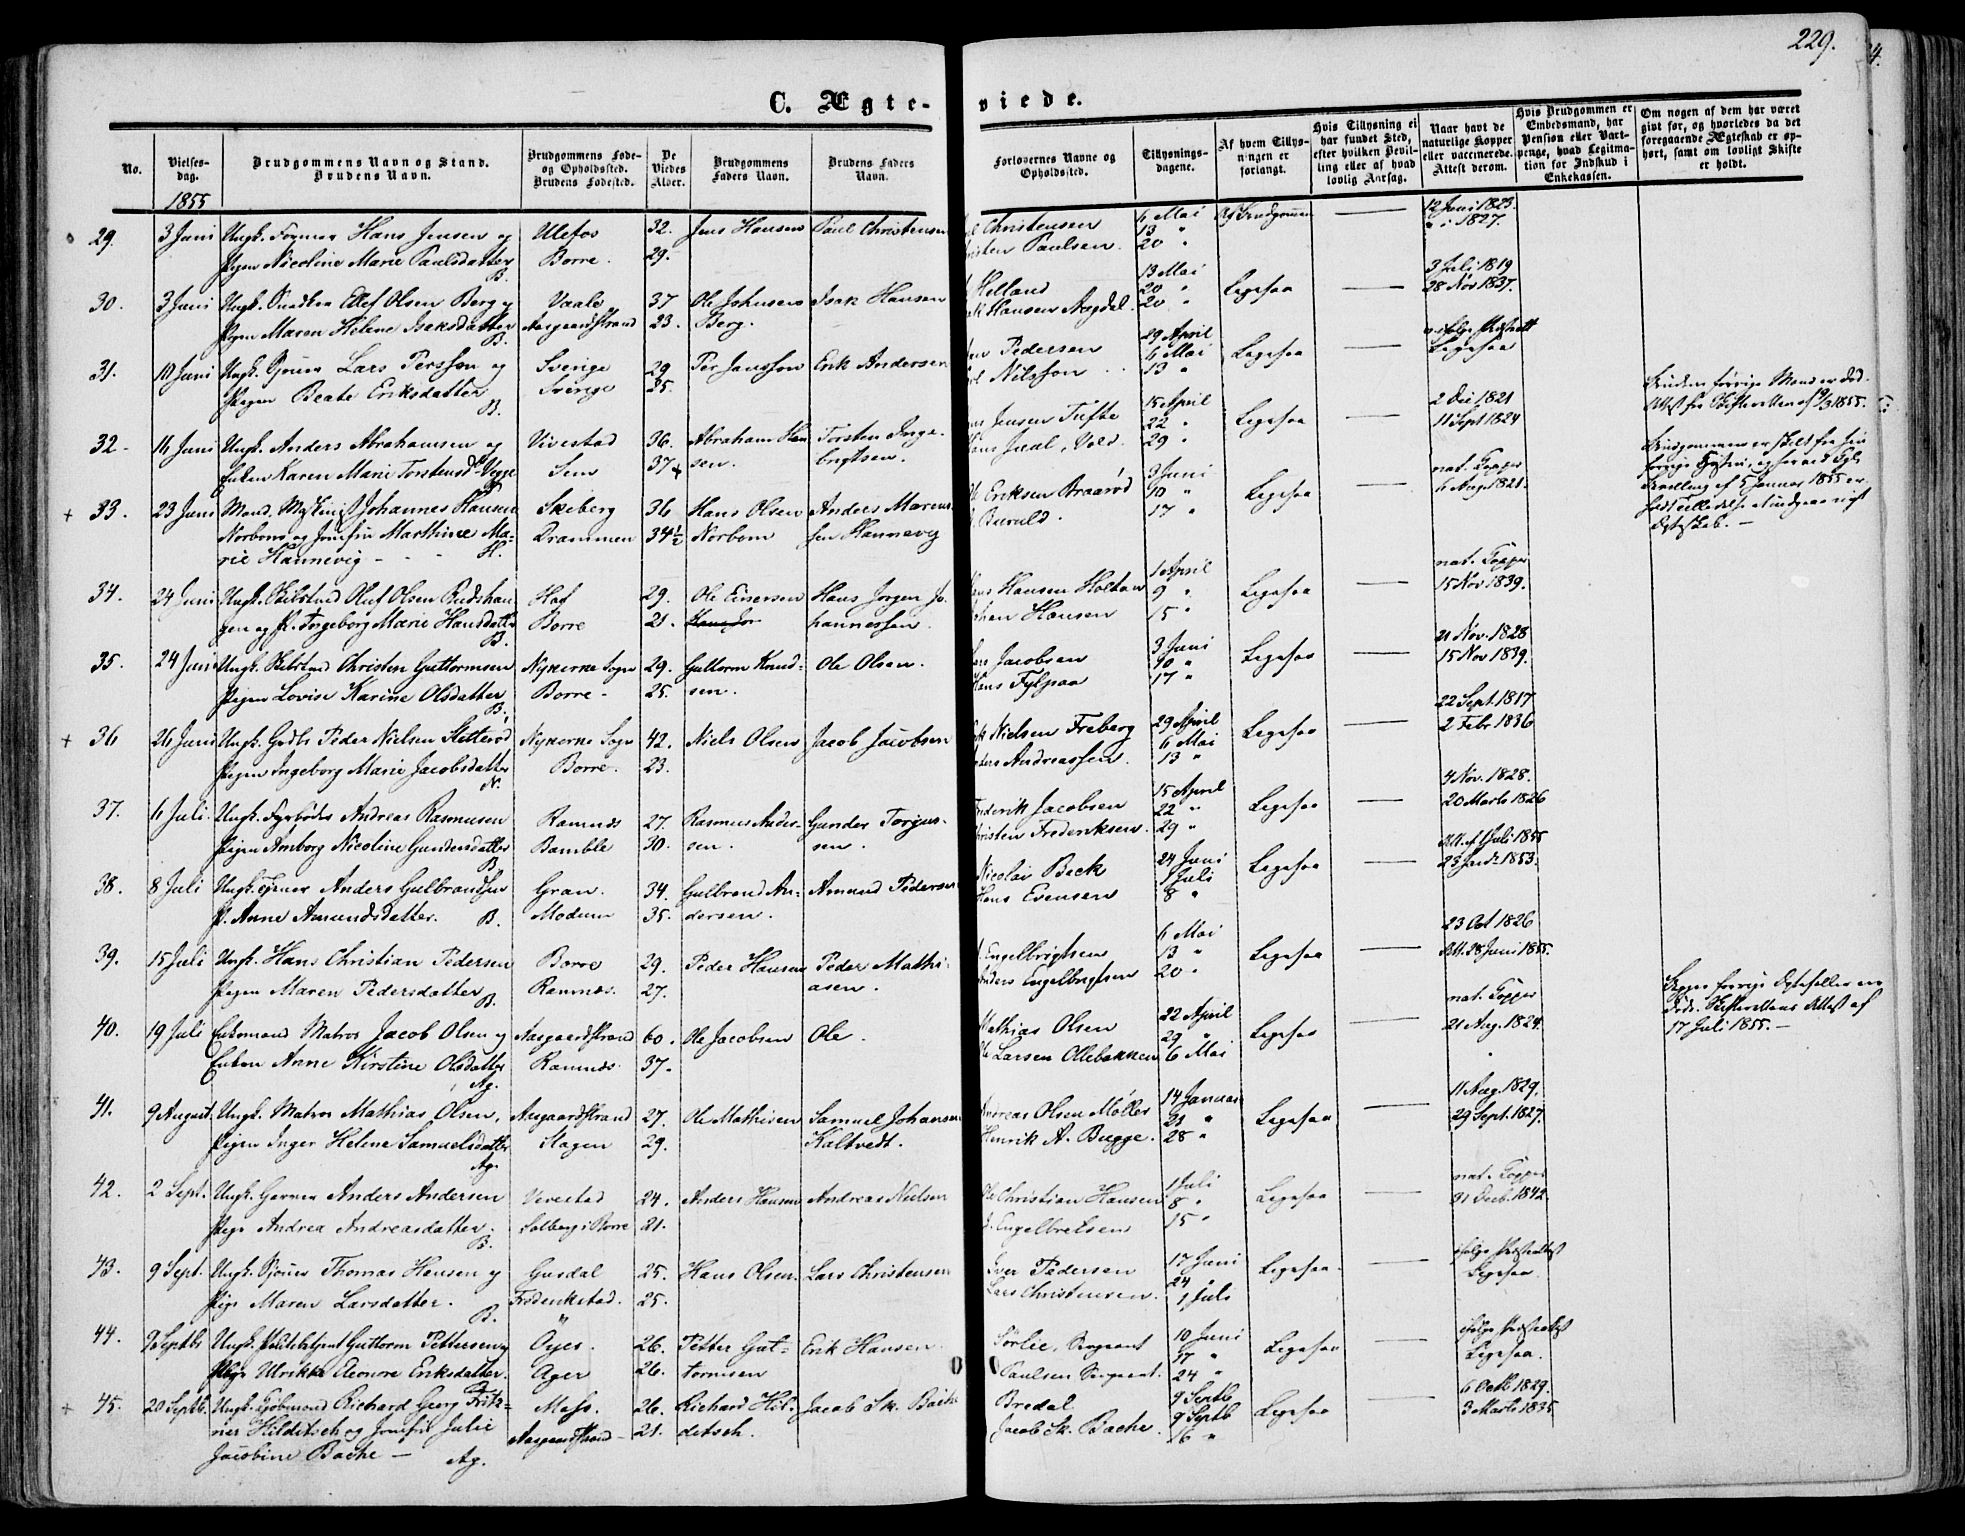 229.
C. Ægte-viede.
No.
Vielses-dag.
Brudgommens Navn og Stand.
Brudens Navn.
Brudgommens Føde- og Opholdssted.
Brudens Fødested.
De Viedes Alder.
Brudgommens Faders Navn.
Brudens Faders Navn.
Forlovernes Navne og Opholdssted.
Tillysnings-dagene.
Af hvem Tillys-ningen er forlangt.
Hvis Tillysning ei har fundet Sted, efter hvilken Bevil-ling eller af hvad lovlig Aarsag.
Naar havt de naturlige Kopper eller vaccinerede. Attest derom.
Hvis Brudgommen er Embedsmand, har Pension eller Vart-penge, hvad Legitma-tion for Indskud i Enkekassen.
Om nogen af dem har været givt før, og hvorledes da det foregaaende Ægteskab er op-hørt, samt om lovligt Skifte er holdt.
1855
29. 3 Juni Ungk. Former Hans Jensen og Ulefos 32. Jens Hansen Paul Christensen Christensen 6 Mai Af Brudgommen — 12 Juni 1823.
Pigen Nicoline Marie Paulsdatter Borre. 29. Paulsen. 13 " 20 " 1827.
B.
30. 3 Juni Ungk. Ellef Olsen Berg og Vaale 37 Ole Johnsen Isak Hansen Helland 13 Mai Ligesaa — 3 Juli 1819
Pigen Maren Helene Isaksdatter Aasgaardstrand 23. Berg. Hansen 20 " 20 " 28 Nov 1837.
B.
31. 10 Juni Ungk. Lars Persson og Sverige 29 Per Jansson Erik Andersen Pedersen 29 April Ligesaa — ifølge Præsteatt
Pigen Beate Eriksdatter Sverige 35. Nilsson 6 Mai 13 " Ligesaa
B.
32. 16 Juni Ungk. Anders Abrahamsen og Vivestad 36. Abraham Han Torsten Inge- Jensen Tufte 15 April Ligesaa — 2 Dec 1821
Enken Karen Marie Torstensd. Sem 37 sen. brigtsen. Juul, Vold. 22 " 29 " 11 Sept 1824
Brudens forrige Mand er død.
Attest fra Skifteretten af 1855.
33. 23 Juni Mand. Maskinist Johannes Hansen Skeberg 36 Hans Olsen Anders Marens Eriksen Braarød 3 Juni Ligesaa — nat. Kopper
Norbom og Jomfru Marthine Ma- Drammen 34½ Norbom sen Hannevig Buruld. 10 " 17 " 6 Aug 1821.
rie Hannevig — H.
Brudgommen er skilt fra sin
forrige Hustru, og har ved Kgl.
Bevilling af 5 Januar 1855 er-
holdt Tilladelse at indgaae nyt
Ægteskab. —
34. 24 Juni Ungk. Oluf Olsen Rudshau Hof 29. Ole Einersen Hans Jørgen Jo- Hansen Holtan 1 April Ligesaa — nat. Kopper
gen og P. Ingeborg Marie Hansdatter Borre 21. hannessen. Hansen 9 " 15 " 15 Nov 1839.
B.
35. 24 Juni Ungk. Christen Guttormsen Nykerne Sogn 29. Guttorm Knud- Ole Olsen. Jacobsen 3 Juni Ligesaa — 21 Nov. 1828
Pigen Lovise Karine Olsdatter Borre. 25. sen. Hans Fylpaa 10 " 17 " 15 Nov 1839.
B.
36 26 Juni Ungk. Peder Nielsen Sletterød Nykerne Sogn 42. Niels Olsen Jacob Jacobsen Nielsen Freberg 29 April Ligesaa — 22 Sept. 1817
Pigen Ingeborg Marie Jacobsdatter Borre. 23. Andreassen. 6 Mai 13 " 2 Febr 1836
N.
37. 6 Juli. Ungk. Fyrbøder Andreas Rasmusen Ramnæs 27. Rasmus Ander- Gunder Torgius- Frederik Jacobsen 15 April Ligesaa — 4 Nov. 1828.
Pigen Amborg Nicoline Gundersdatter Bamble 30. sen. sen. Christen Frederiksen. 22 " 29 " 20 Marts 1826
B.
38. 8 Juli Ungk. Anders Gulbrandsen Gran. 34. Gulbrand An- Amund Pedersen Nicolai Beck 24 Juni Ligesaa — Att. af 1 Juli 1855
P. Anne Amundsdatter. B. Modum 35. dersen. Hans Evensen 1 Juli 8 " 1853.
39. 15 Juli Ungk. Hans Christian Pedersen Borre 29. Peder Hansen Peder Mathi- Engelbrigtsen 6 Mai Ligesaa — 23 Oct 1826
Pigen Maren Pedersdatter Ramnæs. 27. asen. Anders Engelbrigtsen 13 " 20 " Att. 28 Juni 1855.
B.
40. 19 Juli Enkemand Matros Jacob Olsen og Aasgaardstrand 60. Ole Jacobsen Ole. Mathias Olsen 22 April Ligesaa — nat. Kopper
Enken Anne Kirstine Olsdatter Ramnæs. 37. Larsen Ollebakken 29 " 6 Mai 21 Aug. 1824.
Ag.
Begges forrige Ægtefæller ere
døde. Skifterettens Attest af
17 Juli 1855. —
41. 9 August. Ungk. Matros Mathias Olsen, Aasgaardstrand 27. Ole Mathisen Samuel Johansen Andreas Olsen Møller 14 Januar Ligesaa — 11 Aug. 1829.
Pigen Inger Helene Samuelsdatter Slagen 29. Kaltvedt. Henrik A. Bugge. 21 " 28 " 29 Sept. 1827.
Ag.
42. 2 Sept. Ungk. Garver Anders Andersen Vivestad 24. Anders Hansen Andreas Nielsen Ole Christian Hansen 1 Juli Ligesaa — nat. Kopper
Pige Andrea Andreasdatter. Solberg i Borre 21. Engelbretsen 8 " 15 " 31 Decb. 1842.
B.
43. 9 Sept. Ungk. Thomas Hansen og Gusdal 25. Hans Olsen. Lars Christensen Iver Pedersen 17 Juni Ligesaa — ifølge Præsteattest
Pige Maren Larsdatter. Frederikstad. 25. Lars Christensen. 24 " 1 Juli Ligesaa.
B.
44. 9 Septbr Ungk. Guttorm Pettersen og Øyer. 26. Petter Gut- Erik Hansen. Sørlie, Sergeant 10 Juni Ligesaa — ifølge Præsteattest
Pige Ulrikke Eleonore Eriksdatter. Ager 26. tormsen Paulsen Sergeant. 17 " 24 " Ligesaa.
45. 20 Septb. Ungk. Kjøbmand Richard Georg Fritz- Moss. 26. Richard Hil- Jacob Sk. Bache Bredal 9 Septb Ligesaa — 6 Octb 1829.
ner Hilditsch og Jomfru Julie Aasgaardstrand — 21. ditsch. Jacob Sk. Bache. 9 Septb 16 " 3 Marts 1835
Jacobine Bache — Ag.